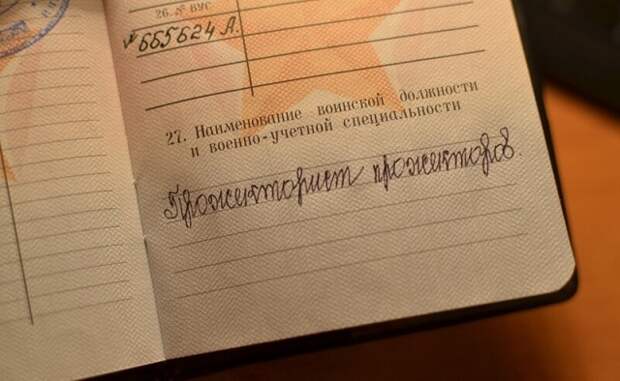 26. № ВУС
№ 665624 А.
27. Наименование воинской должности
и военно-учетной специальности
Прожекторист прожекторов.